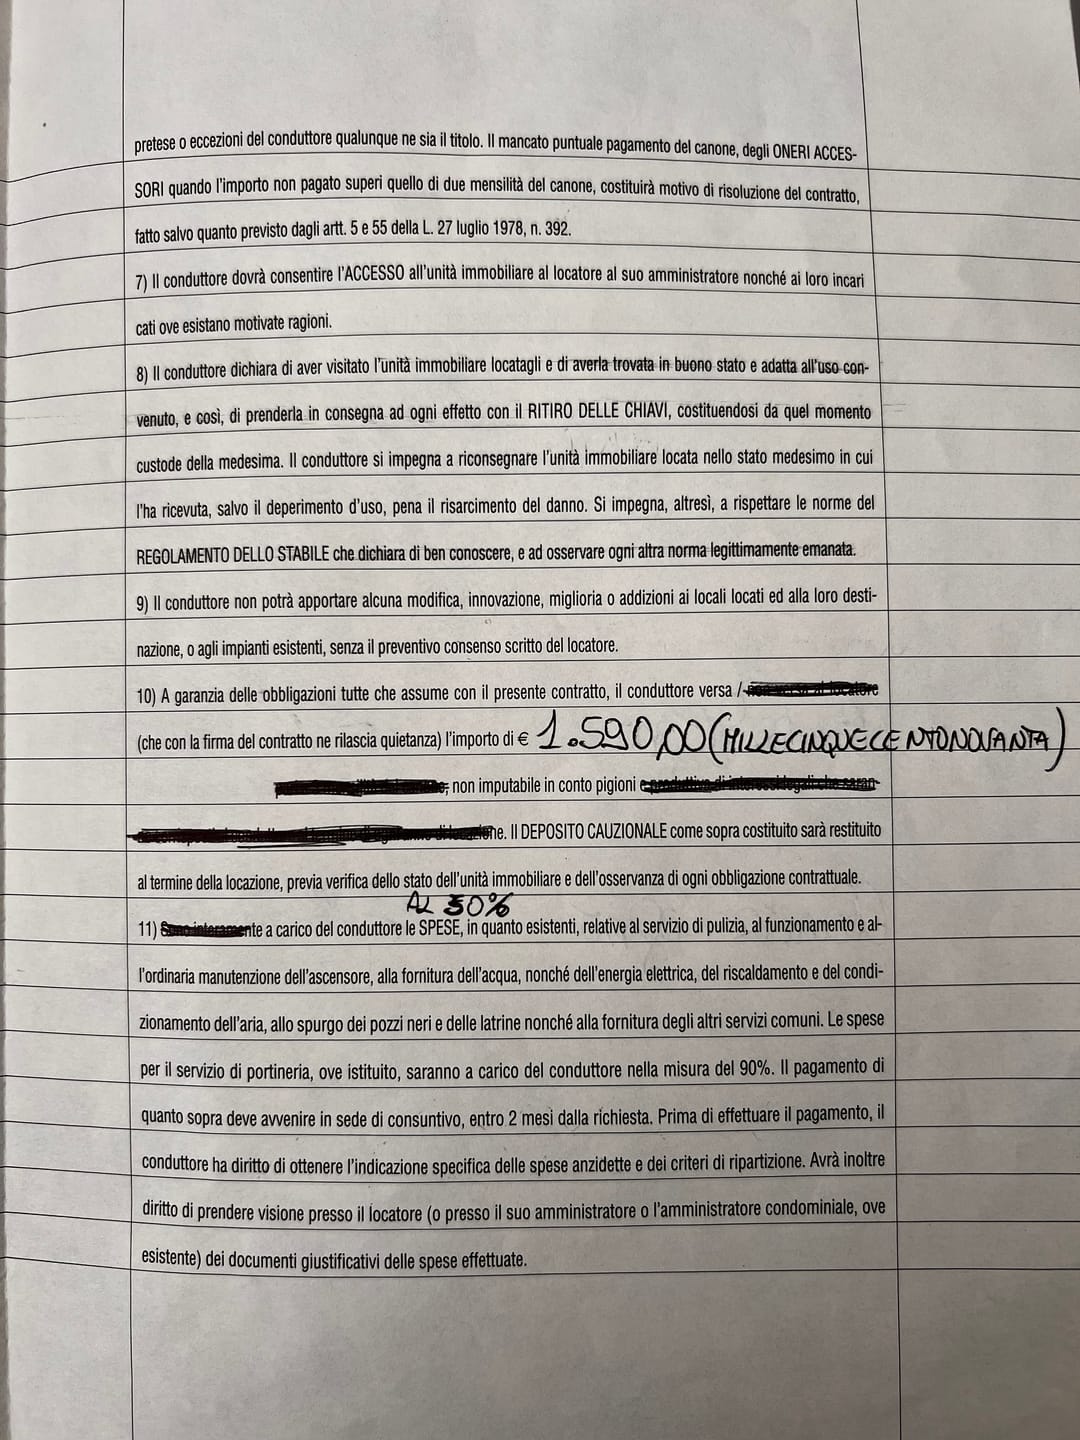 pretese o eccezioni del conduttore qualunque ne sia il titolo. Il mancato puntuale pagamento del canone, degli ONERI ACCES-
SORI quando l'importo non pagato superi quello di due mensilità del canone, costituirà motivo di risoluzione del contratto,
fatto salvo quanto previsto dagli artt. 5 e 55 della L. 27 luglio 1978, n. 392.
7) Il conduttore dovrà consentire l'ACCESSO all'unità immobiliare al locatore al suo amministratore nonché ai loro incari
cati ove esistano motivate ragioni.
8) Il conduttore dichiara di aver visitato l'unità immobiliare locatagli e di averla trovata in buono stato e adatta all'uso con-
venuto, e così, di prenderla in consegna ad ogni effetto con il RITIRO DELLE CHIAVI, costituendosi da quel momento
custode della medesima. Il conduttore si impegna a riconsegnare l'unità immobiliare locata nello stato medesimo in cui
l'ha ricevuta, salvo il deperimento d'uso, pena il risarcimento del danno. Si impegna, altresì, a rispettare le norme del
REGOLAMENTO DELLO STABILE che dichiara di ben conoscere, e ad osservare ogni altra norma legittimamente emanata.
9) Il conduttore non potrà apportare alcuna modifica, innovazione, miglioria o addizioni ai locali locati ed alla loro desti-
nazione, o agli impianti esistenti, senza il preventivo consenso scritto del locatore.
10) A garanzia delle obbligazioni tutte che assume con il presente contratto, il conduttore versa / non versa al locatore
(che con la firma del contratto ne rilascia quietanza) l'importo di € 1.590,00 (MILLECINQUECENTONOVANTA)
non imputabile in conto pigioni e produttivo di interessi legali che saran-
ne. Il DEPOSITO CAUZIONALE come sopra costituito sarà restituito
al termine della locazione, previa verifica dello stato dell'unità immobiliare e dell'osservanza di ogni obbligazione contrattuale.
AL 50%
11) Sono interamente a carico del conduttore le SPESE, in quanto esistenti, relative al servizio di pulizia, al funzionamento e al-
l'ordinaria manutenzione dell'ascensore, alla fornitura dell'acqua, nonché dell'energia elettrica, del riscaldamento e del condi-
zionamento dell'aria, allo spurgo dei pozzi neri e delle latrine nonché alla fornitura degli altri servizi comuni. Le spese
per il servizio di portineria, ove istituito, saranno a carico del conduttore nella misura del 90%. Il pagamento di
quanto sopra deve avvenire in sede di consuntivo, entro 2 mesi dalla richiesta. Prima di effettuare il pagamento, il
conduttore ha diritto di ottenere l'indicazione specifica delle spese anzidette e dei criteri di ripartizione. Avrà inoltre
diritto di prendere visione presso il locatore (o presso il suo amministratore o l'amministratore condominiale, ove
esistente) dei documenti giustificativi delle spese effettuate.